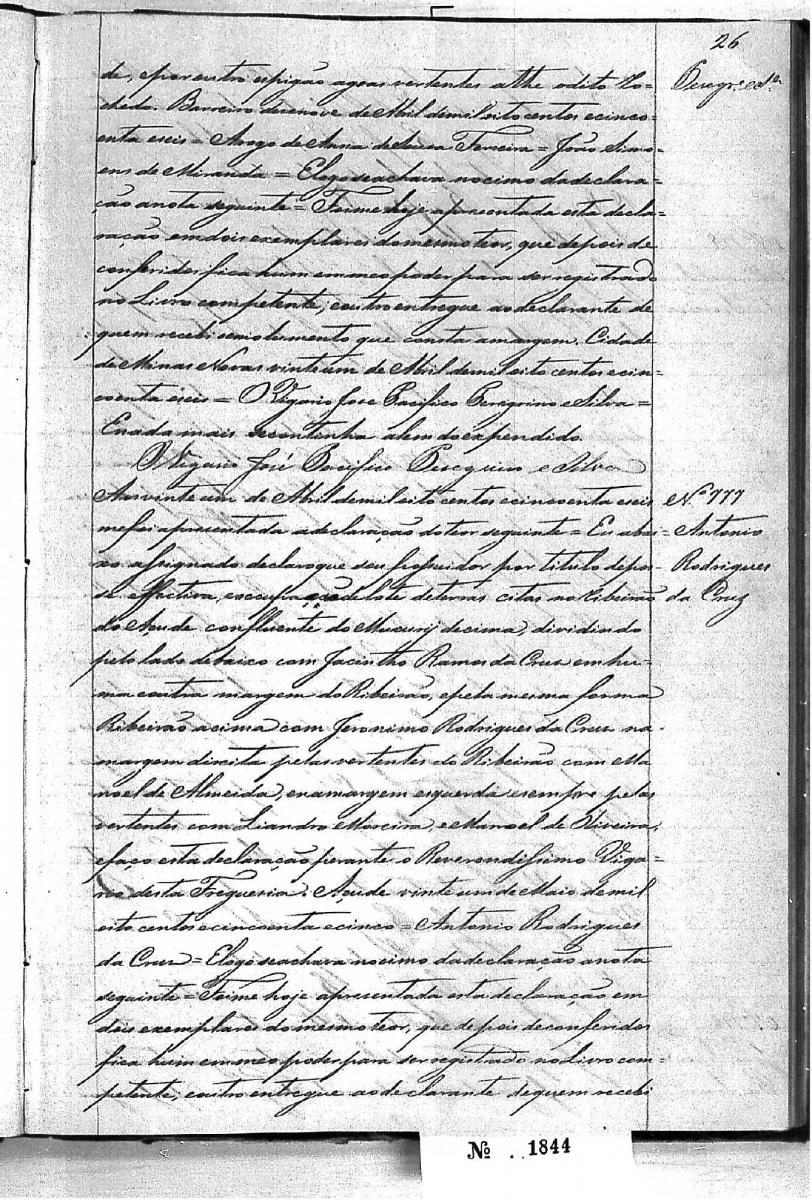 26
de, e por outro espigão agoas vertentes athe o dito Ro-
chedo. Barreiro desenove de Abril de mil oito centos e cinco-
enta e seis = Arogo de Anna de Ferreira = João Simo-
ens de Miranda = E logo se achava no cimo da declara-
ção a nota seguinte = Foime hoje apresentada esta decla-
ração em dois exemplares do mesmo teor, que depois de
conferidos fica hum em meo poder para ser registrado
no Livro competente, e outro entregue ao declarante de
quem recebi o emolumento que consta a margem. Cidade
de Minas Novas vinte um de Abril de mil oito centos e cin-
coenta e seis = O Vigario Jose Pacifico Peregrino e Silva =
E nada mais se continha alem do expendido.
O Vigario José Pacifico Peregrino e Silva
Aos vinte um de Abril de mil oito centos e cincoenta e seis
me foi apresentada a declaração do teor seguinte = Eu abai-
xo assignado declaro que sou possuidor por titulo de pos-
se effectiva, e occupação de lote de terras citas no Ribeirão
do Açude confluente do Mucurij de cima, dividindo
pelo lado de baixo com Jacintho Ramos da Cruz em hu-
ma e outra margem do Ribeirão, e pela mesma forma
Ribeirão acima com Jeronimo Rodrigues da Cruz na
margem direita pelas vertentes do Ribeirão com Ma
noel de Almeida, e na margem esquerda e sempre pelas
vertentes com Liandro Moreira, e Manoel de Oliveira,
e faço esta declaração perante o Reverendissimo Viga-
rio desta Freguesia. Açude vinte um de Maio de mil
oito centos e cincoenta e cinco = Antonio Rodrigues
da Cruz = E logo se achava no cimo da declaração a nota
seguinte = Foime hoje apresentada esta declaração em
dois exemplares do mesmo teor, que depois de conferidos
fica hum em meo poder para ser registrado no Livro com-
petente, e outro entregue ao declarante de quem recebi
Nº 777
Antonio
Rodrigues
da Cruz
Nº 1844